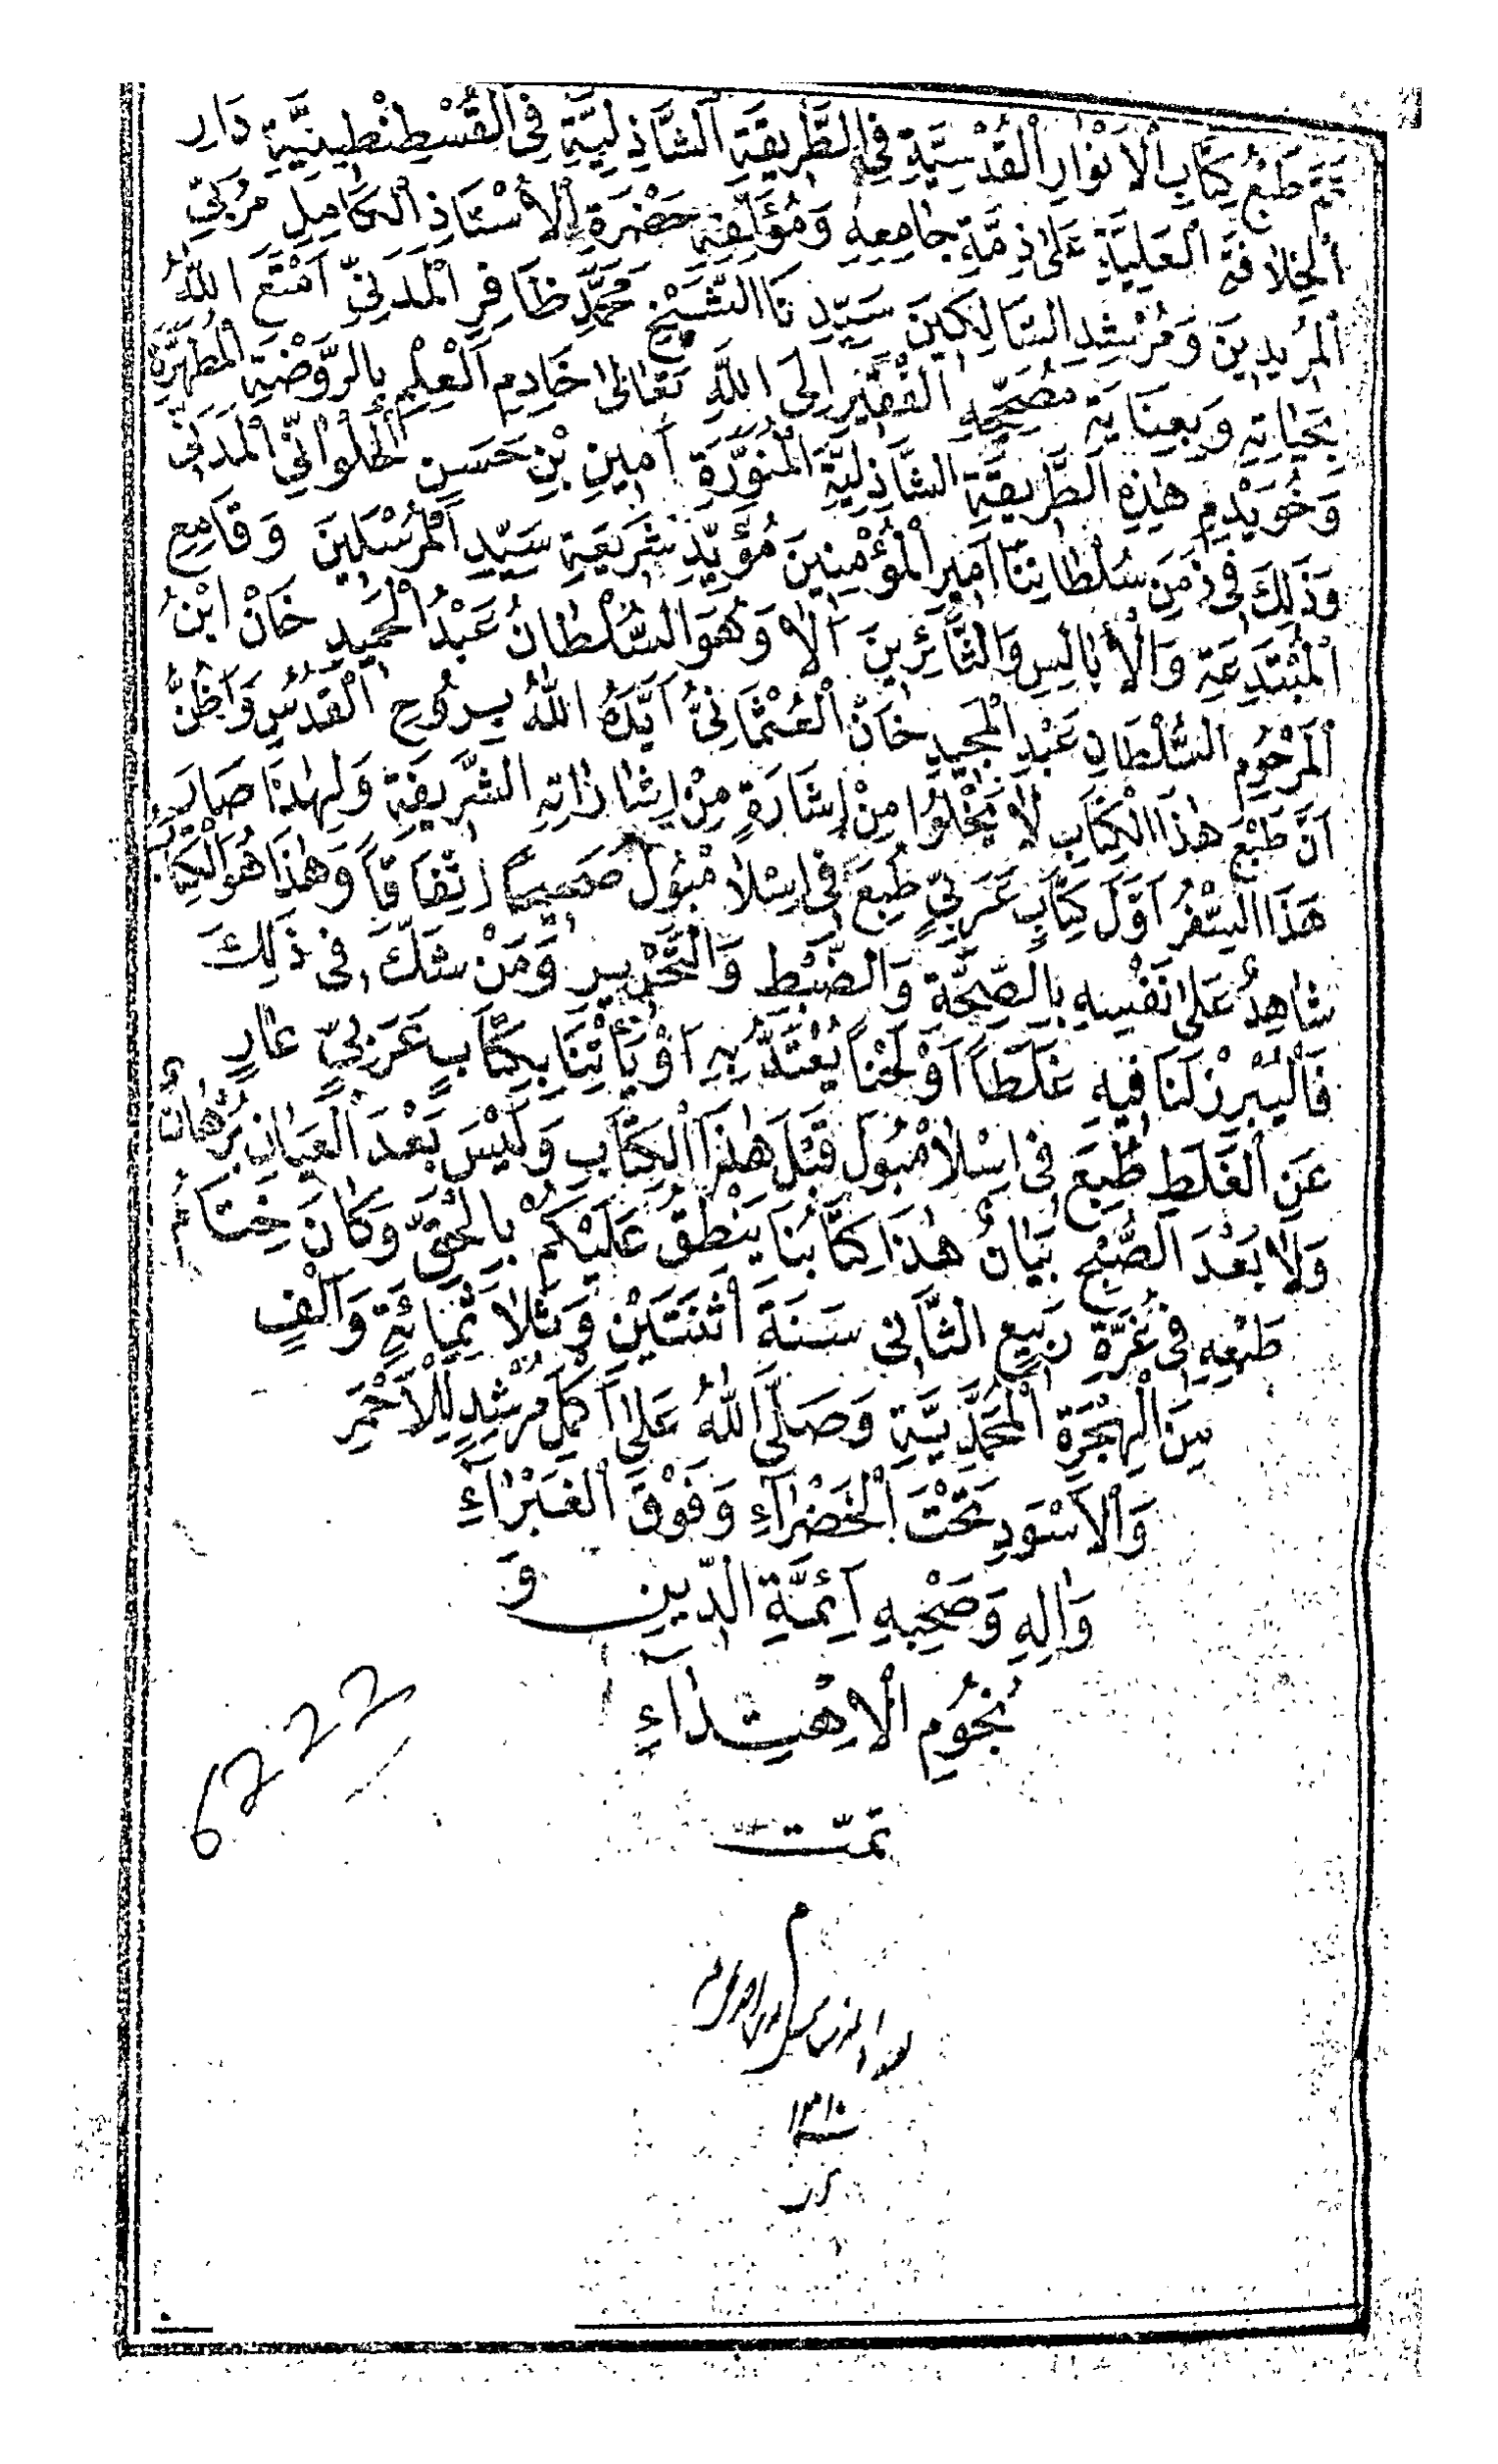 تَمَّ طَبْعُ كِتَابِ الْاَنْوَارِ الْقُدْسِيَّةِ فِى الطَّرِيقَةِ الشَّاذِلِيَّةِ فِى الْقُسْطَنْطِينِيَّةِ دَارِ
الْخِلَافَةِ الْعَلِيَّةِ عَلٰى ذِمَّةِ جَامِعِهِ وَمُؤَلِّفِهِ حَضْرَةِ الْاُسْتَاذِ الْكَامِلِ مُرَبِّى
الْمُرِيدِينَ وَمُرْشِدِ السَّالِكِينَ سَيِّدِنَا الشَّيْخِ مُحَمَّدِ ظَافِرِ الْمَدَنِىِّ اَمْتَعَ اللّٰهُ
بِحَيَاتِهِ وَبِعِنَايَةِ مُصَحِّحِهِ الْفَقِيرِ اِلَى اللّٰهِ تَعَالٰى خَادِمِ الْعِلْمِ بِالرَّوْضَةِ الْمُطَهَّرَةِ
وَخُوَيْدِمِ هٰذِهِ الطَّرِيقَةِ الشَّاذِلِيَّةِ الْمُنَوَّرَةِ اَمِينِ بْنِ حَسَنِ الْحُلْوَانِىِّ الْمَدَنِىِّ
وَذٰلِكَ فِى زَمَنِ سُلْطَانِنَا اَمِيرِ الْمُؤْمِنِينَ مُؤَيِّدِ شَرِيعَةِ سَيِّدِ الْمُرْسَلِينَ وَقَامِعِ
الْمُبْتَدِعَةِ وَالْاَبَالِسِ وَالثَّائِرِينَ اَلَا وَهُوَ السُّلْطَانُ عَبْدُ الْحَمِيدِ خَانْ ابْنُ
الْمَرْحُومِ السُّلْطَانِ عَبْدِ الْمَجِيدِ خَانْ الْعُثْمَانِىُّ اَيَّدَهُ اللّٰهُ بِرُوحِ الْقُدُسِ وَاَظُنُّ
اَنَّ طَبْعَ هٰذَا الْكِتَابِ لَا يَخْلُوا مِنْ اِشَارَةٍ مِنْ اِشَارَاتِهِ الشَّرِيفَةِ وَلِهٰذَا صَارَ
هٰذَا السِّفْرُ اَوَّلَ كِتَابٍ عَرَبِىٍّ طُبِعَ فِى اِسْلَامْبُولَ صَحِيحًا اِتِّفَاقًا وَهٰذَا هُوَ الْكِتَابُ
شَاهِدٌ عَلٰى نَفْسِهِ بِالصِّحَّةِ وَالضَّبْطِ وَالتَّحْرِيرِ وَمَنْ شَكَّ فِى ذٰلِكَ
فَالْيُبْرِزْ لَنَا فِيهِ غَلَطًا اَوْ لَحْنًا يُعْتَدُّ بِهِ اَوْ يَأْتِنَا بِكِتَابٍ عَرَبِىٍّ عَارٍ
عَنِ الْغَلَطِ طُبِعَ فِى اِسْلَامْبُولَ قَبْلَ هٰذَا الْكِتَابِ وَلَيْسَ بَعْدَ الْعِيَانِ بُرْهَانٌ
وَلَا بَعْدَ الصُّبْحِ بَيَانٌ هٰذَا كِتَابُنَا يَنْطِقُ عَلَيْكُمْ بِالْحَقِّ وَكَانَ خِتَامُ
طَبْعِهِ فِى غُرَّةِ رَبِيعِ الثَّانِى سَنَةَ اثْنَتَيْنِ وَثَلَاثِمِائَةٍ وَاَلْفٍ
مِنَ الْهِجْرَةِ الْمُحَمَّدِيَّةِ وَصَلَّى اللّٰهُ عَلٰى اَكْمَلِ مُرْشِدٍ لِلْاَحْمَرِ
وَالْاَسْوَدِ تَحْتَ الْخَضْرَآءِ وَفَوْقَ الْغَبْرَآءِ
وَاٰلِهِ وَصَحْبِهِ اَئِمَّةِ الدِّينِ وَ
نُجُومِ الْاِهْتِدَآءِ
تمّت
6222
١٣١٠